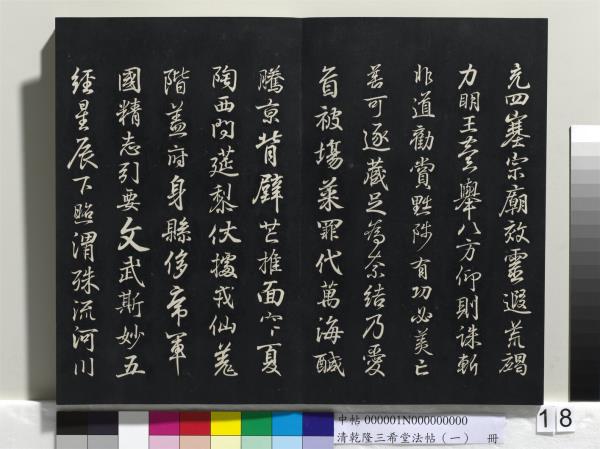 充四塞宗廟效靈遐荒竭
力明王蓋舉八方仰則誅斬
非道勸賞黜陟有功必美亡
善可逐藏足為奈結乃愛
首被場菜罪代萬海鹹
騰京背壁芒推面六夏
陶西問莚黎伏據戎仙羌
階蓋府身縣侈帝軍
國精志引要文武斯妙五
經星辰下照渭殊流河川
中帖 000001N000000000
清乾隆三希堂法帖（一） 冊
18